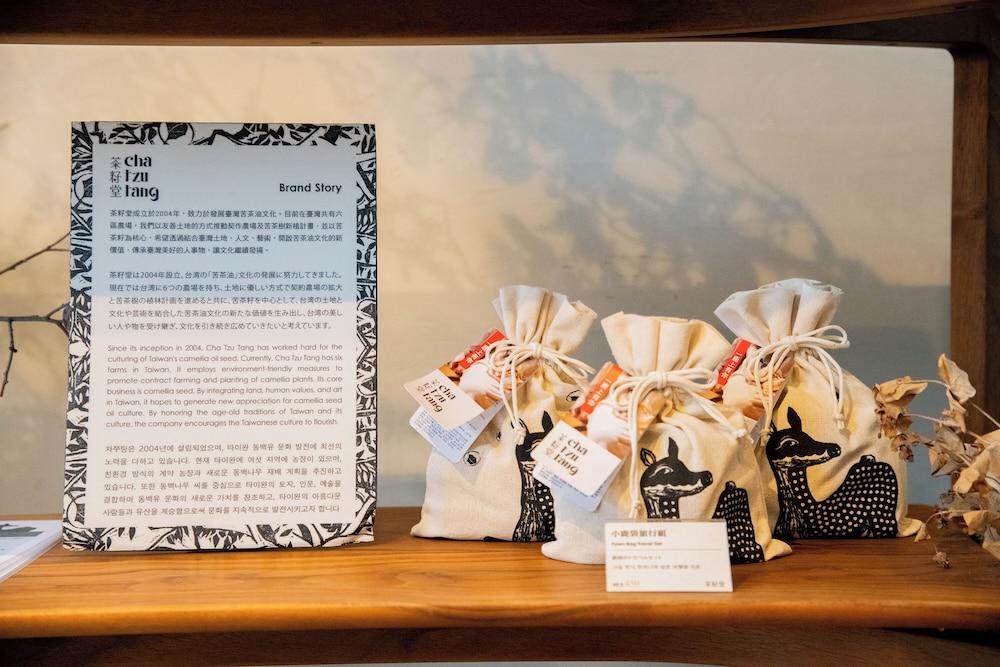 茶籽堂
cha
tzu
tang
Brand Story
茶籽堂成立於2004年，致力於發展臺灣苦茶油文化。目前在臺灣共有六
區農場，我們以友善土地的方式推動契作農場及苦茶樹新植計畫，並以苦
茶籽為核心，希望透過結合臺灣土地、人文、藝術，開啟苦茶油文化的新
價值，傳承臺灣美好的人事物，讓文化繼續發揚。
茶籽堂は2004年設立。台湾の「苦茶油」文化の発展に努力してきました。
現在では台湾に6つの農場を持ち、土地に優しい方式で契約農場の拡大
と苦茶樹の植林計画を進めると共に、苦茶籽を中心として、台湾の土地と
文化や芸術を結合した苦茶油文化の新たな価値を生み出し、台湾の美し
い人や物を受け継ぎ、文化を引き続き広めていきたいと考えています。
Since its inception in 2004, Cha Tzu Tang has worked hard for the
culturing of Taiwan's camellia oil seed. Currently, Cha Tzu Tang has six
farms in Taiwan. It employs environment-friendly measures to
promote contract farming and planting of camellia plants. Its core
business is camellia seed. By integrating land, human values, and art
in Taiwan, it hopes to generate new appreciation for camellia seed
oil culture. By honoring the age-old traditions of Taiwan and its
culture, the company encourages the Taiwanese culture to flourish.
차쭈탕은 2004년에 설립되었으며, 타이완 동백유 문화 발전에 최선의
노력을 다하고 있습니다. 현재 타이완에 여섯 지역에 농장이 있으며,
친환경 방식의 계약 농장과 새로운 동백나무 재배 계획을 추진하고
있습니다. 또한 동백나무 씨를 중심으로 타이완의 토지, 인문, 예술을
결합하여 동백유 문화의 새로운 가치를 창조하고, 타이완의 아름다운
사람들과 유산을 계승함으로써 문화를 지속적으로 발전시키고자 합니다
cha
tzu
tang
cha
tzu
tang
小鹿袋旅行組
Fawn Bag Travel Set
茶籽堂